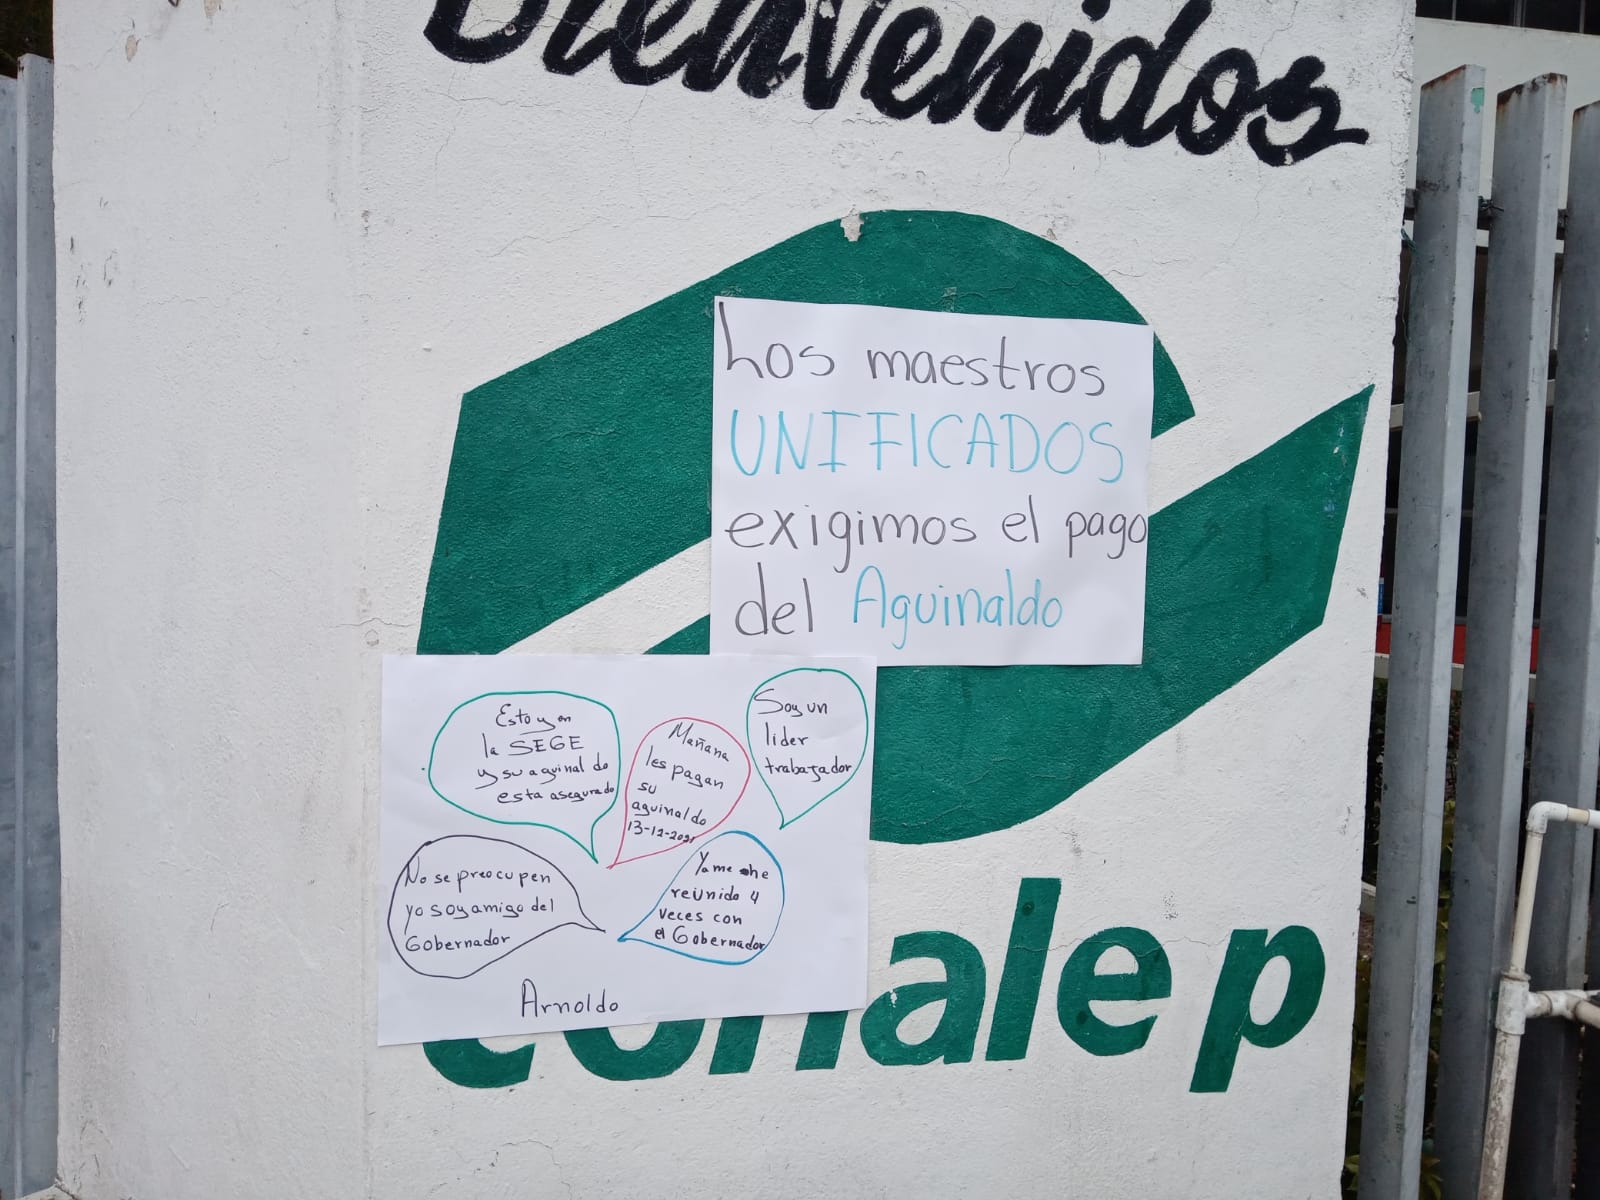 Bienvenidos
Los maestros
UNIFICADOS
exigimos el pago
del Aguinaldo
Estoy en
la SEGE
y su aguinaldo
esta asegurado
Mañana
les pagan
su
aguinaldo
13-12-2021
Soy un
lider
trabajador
No se preocupen
yo soy amigo del
Gobernador
Ya me he
reunido 4
veces con
el Gobernador
Arnoldo
conalep